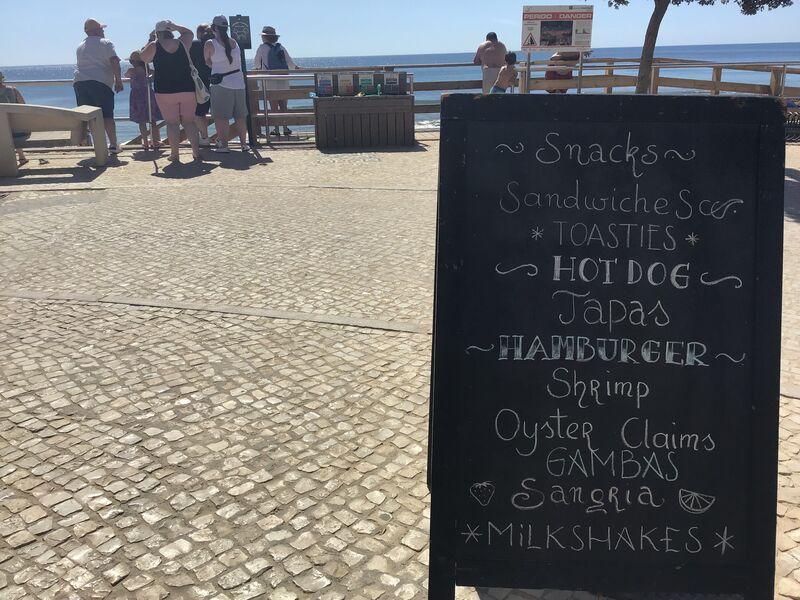 PERIGO DANGER
Snacks
Sandwiches
TOASTIES
HOT DOG
Tapas
HAMBURGER
Shrimp
Oyster Claims
GAMBAS
Sangria
MILKSHAKES